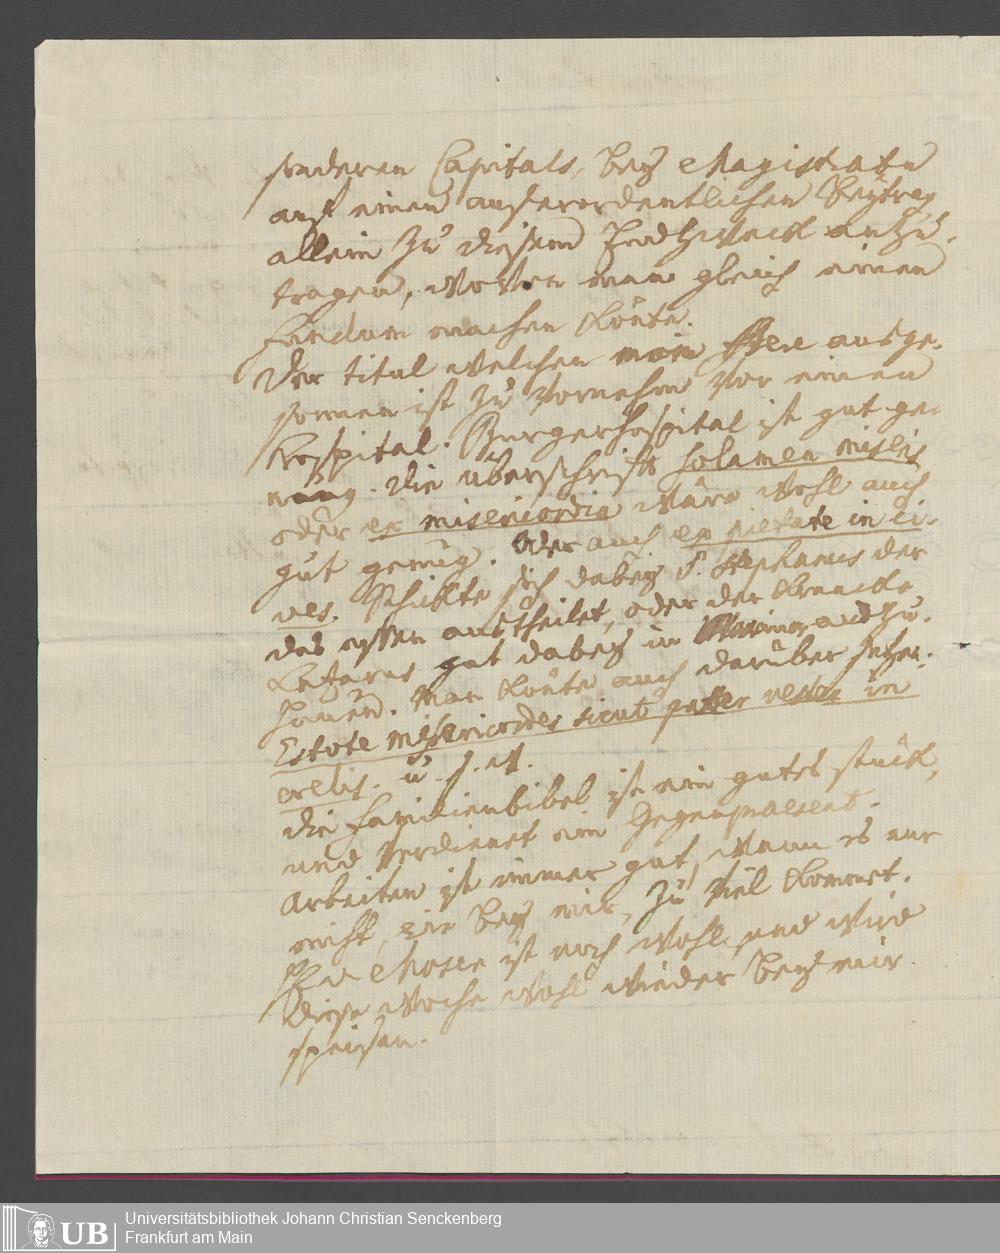 sonderen Capitals, bey Magistratu
auf einen ausserordentlichen beytrag
allein zu diesem Endzweck anzu-
tragen, wovon man gleich einen
fundum machen könte.
Der titul welchen mein Herr ausge-
sonnen ist zu vornehm vor einen
Hospital. Burgerhospital ist gut ge-
nung. Die überschrifft solamen miseris
oder ex misericordia wäre wohl auch
gut genug. Oder auch ex pietate in ci-
ves. Schickte sich dabey S. Stephanus der
das essen austheilet, oder der krancke
Lazarus gut dabey in Marmor auszu-
hauen. Man könte auch darüber setzen:
Estote misericordes sicut pater vester in
coelis. u. s. w.
die familienbibel ist ein gutes stück,
und verdienet ein Gegenpraesent.
Arbeiten ist immer gut, wann es nur
nicht, wie bey mir, zu viel kommet.
Hr. v. Moser ist noch wohl, und wird
diese woche wohl wieder bey mir
speisen.
UB
Universitätsbibliothek Johann Christian Senckenberg
Frankfurt am Main